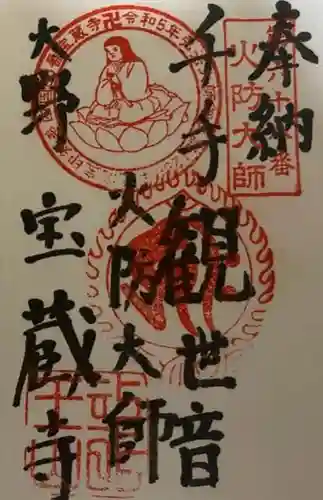 奉納
千手観世音
火防大師
大野
宝蔵寺
火防大師
令和5年